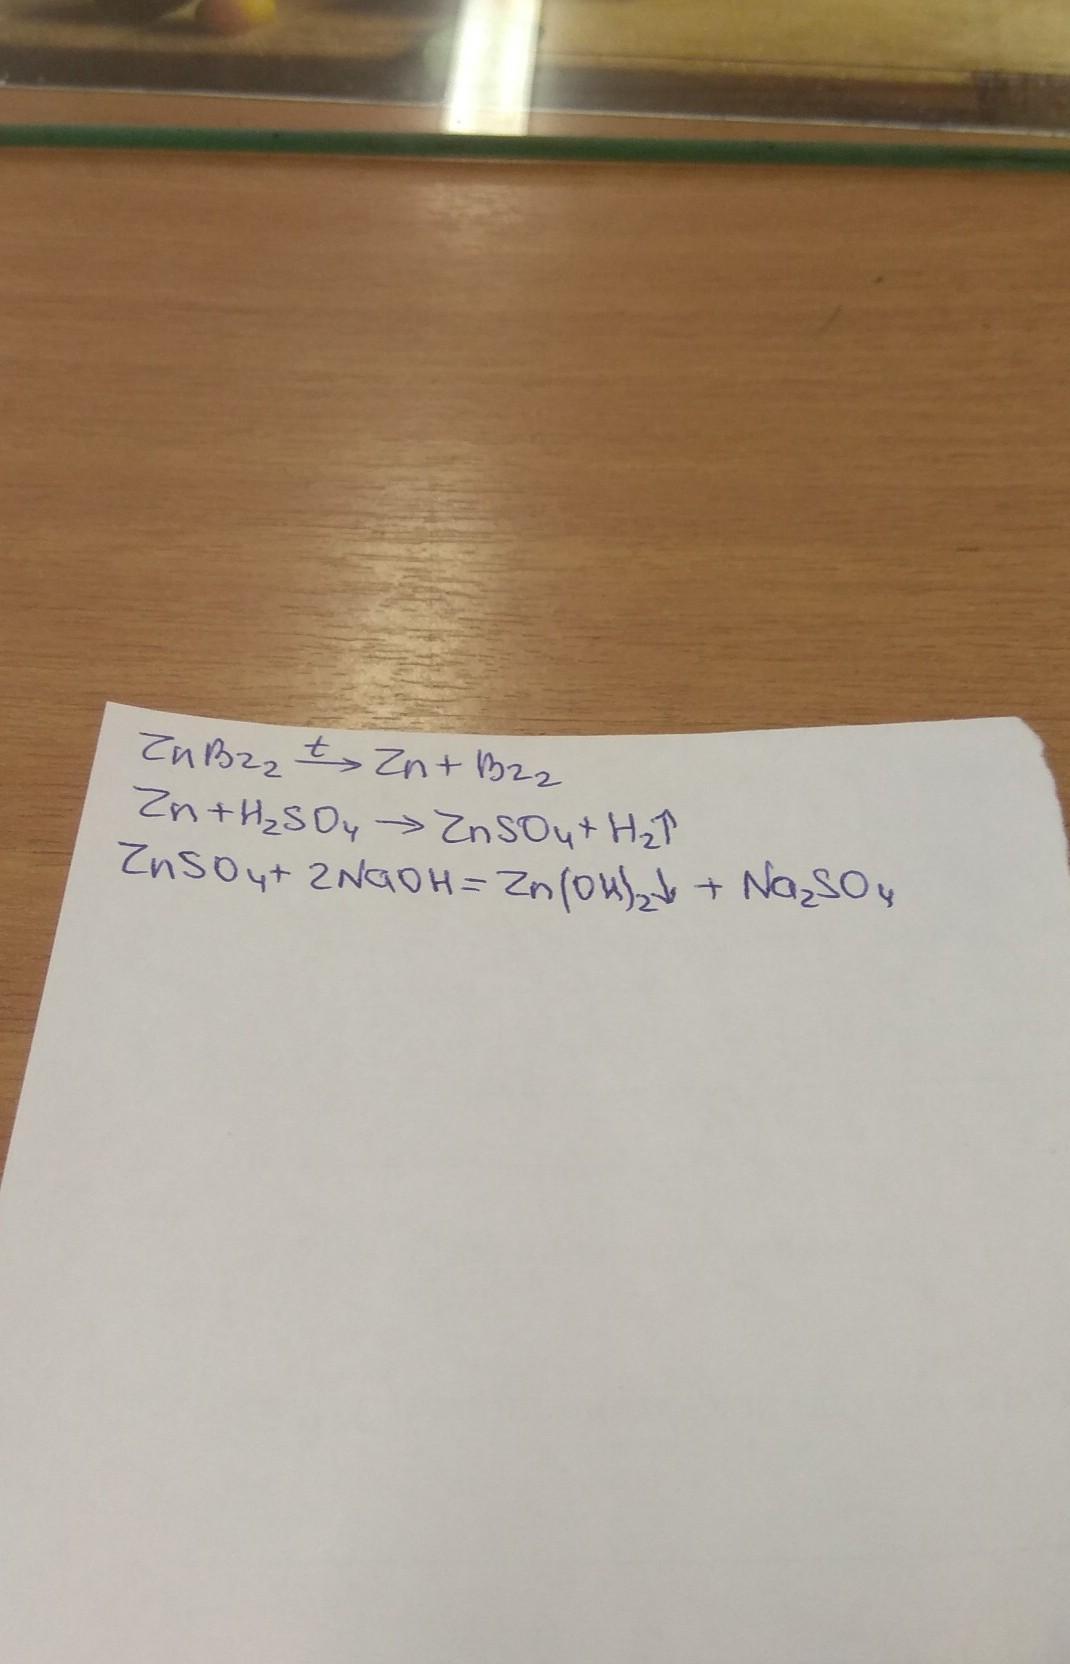 ZnBr₂ →ᵗ Zn + Br₂
Zn + H₂SO₄ → ZnSO₄ + H₂↑
ZnSO₄ + 2NaOH = Zn(OH)₂↓ + Na₂SO₄